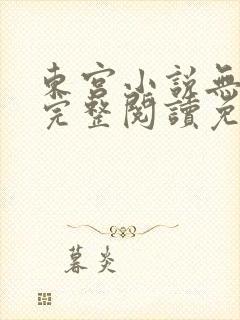 東宮小說無
完整閱讀免
暮炎